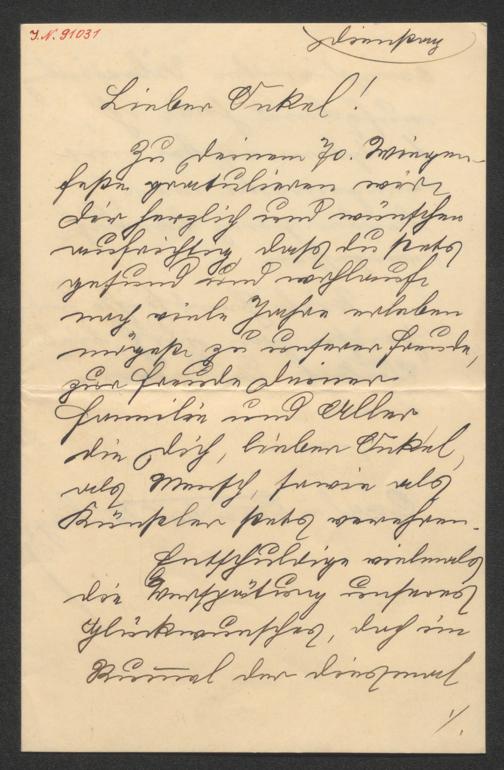 J.N. 91031
Dienstag
Lieber Onkel!
Zu deinem 70. Wiegen-
feste gratulieren wir
dir herzlich und wünschen
aufrichtig, dass du stets
gesund und wohlauf
noch viele Jahre erleben
mögest zu unserer Freude,
zur Freude deiner
Familie und Aller
die dich, lieber Onkel,
als Mensch, sowie als
Künstler stets verehren.
Entschuldige vielmals
die Verspätung unseres
Glückwunsches, doch im
Rummel der diesmal
./.